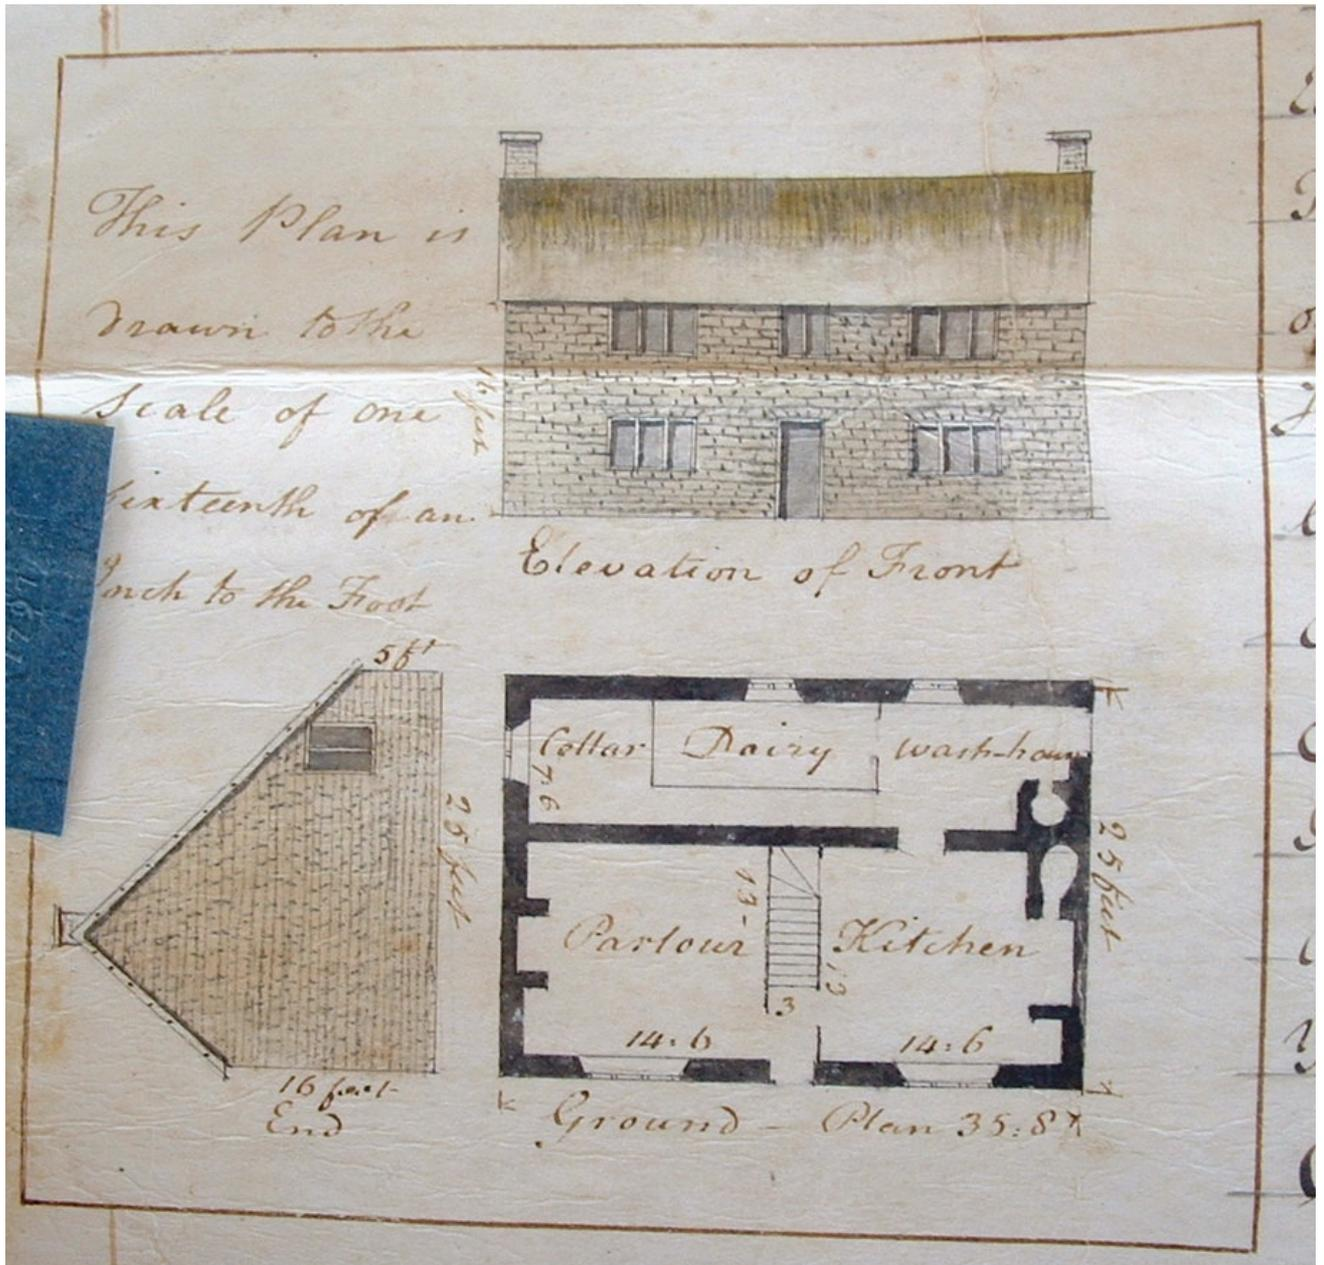 This Plan is
drawn to the
Scale of one
Sixteenth of an
Inch to the Foot
16 feet
Elevation of Front
5 ft
25 feet
16 feet
End
Cellar Dairy Wash-house
7:6
13
Parlour Kitchen
13
3
14:6 14:6
25 feet
Ground - Plan 35:8